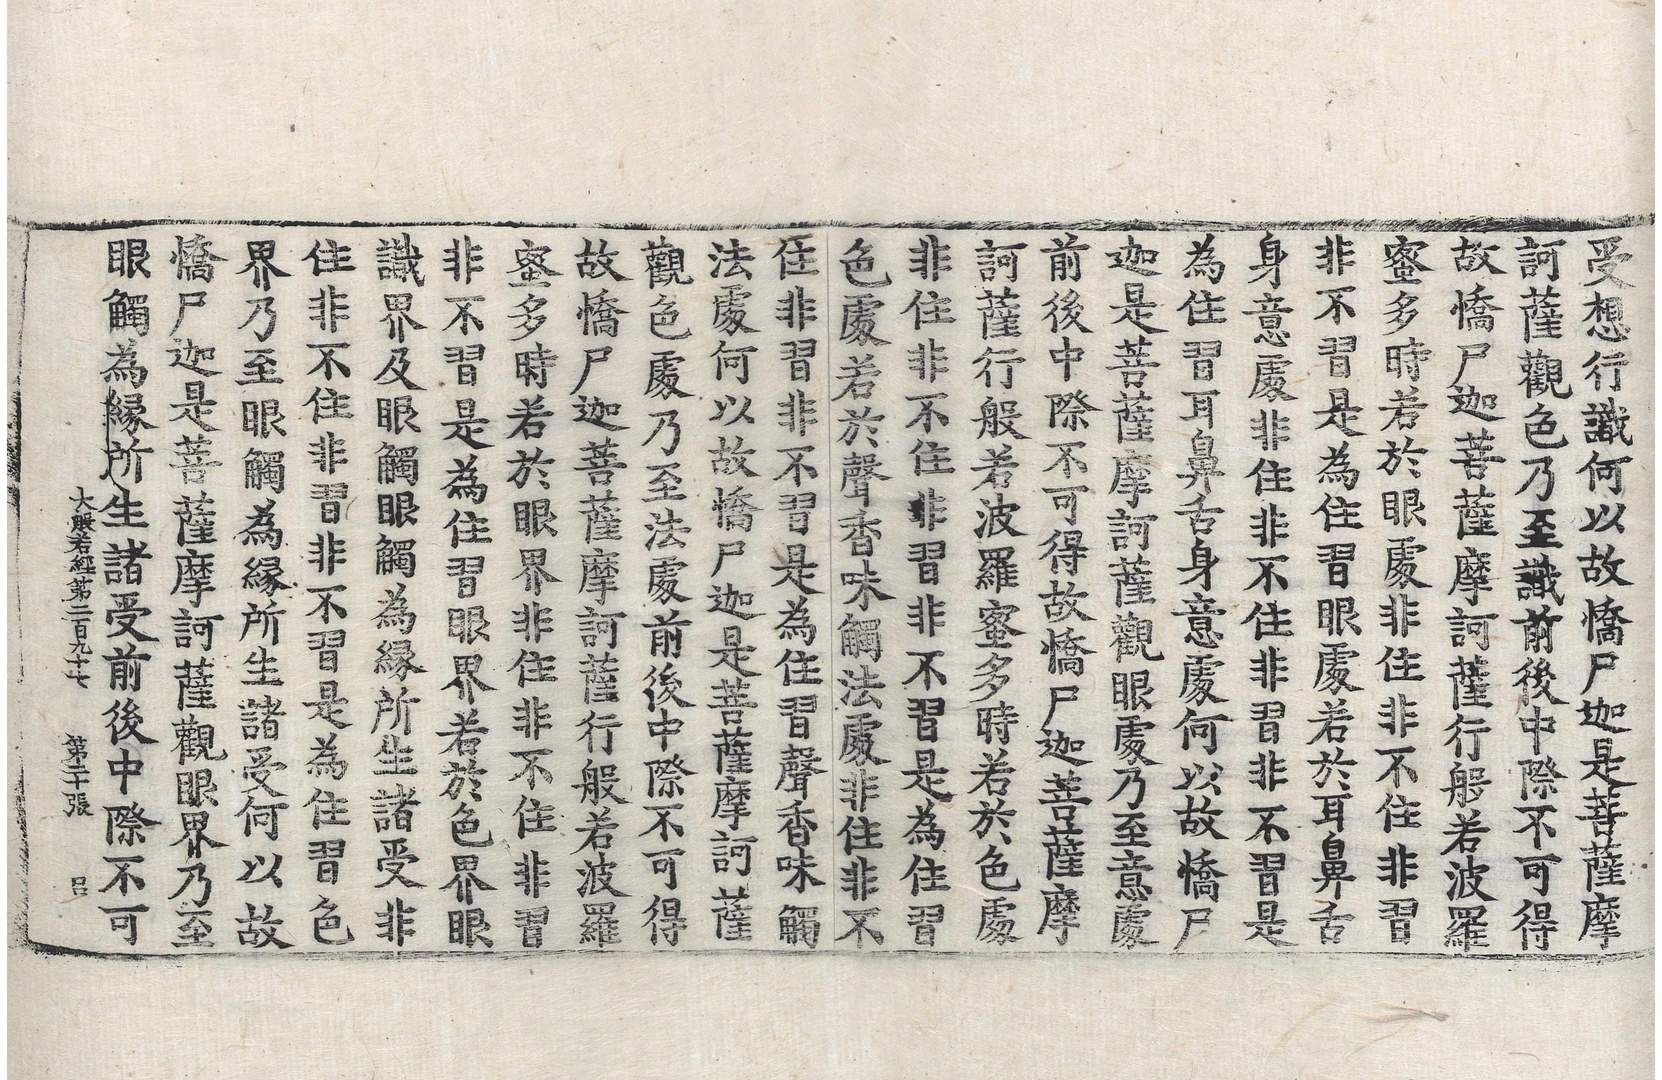 受想行識何以故憍尸迦是菩薩摩
訶薩觀色乃至識前後中際不可得
故憍尸迦菩薩摩訶薩行般若波羅
蜜多時若於眼處非住非不住非習
非不習是為住習眼處若於耳鼻舌
身意處非住非不住非習非不習是
為住習耳鼻舌身意處何以故憍尸
迦是菩薩摩訶薩觀眼處乃至意處
前後中際不可得故憍尸迦菩薩摩
訶薩行般若波羅蜜多時若於色處
非住非不住非習非不習是為住習
色處若於聲香味觸法處非住非不
住非習非不習是為住習聲香味觸
法處何以故憍尸迦是菩薩摩訶薩
觀色處乃至法處前後中際不可得
故憍尸迦菩薩摩訶薩行般若波羅
蜜多時若於眼界非住非不住非習
非不習是為住習眼界若於色界眼
識界及眼觸眼觸為緣所生諸受非
住非不住非習非不習是為住習色
界乃至眼觸為緣所生諸受何以故
憍尸迦是菩薩摩訶薩觀眼界乃至
眼觸為緣所生諸受前後中際不可
大般若經第二百九十七 第二十張 呂